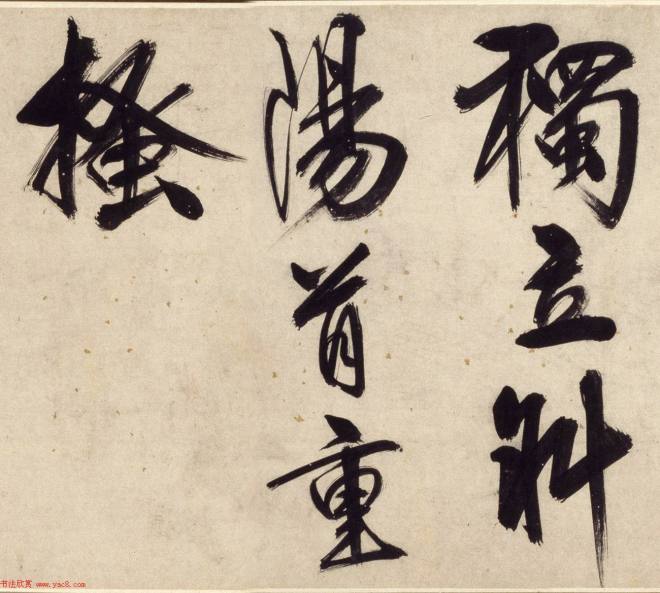 獨立斜
陽首重
搔
书法欣赏 www.yac8.com